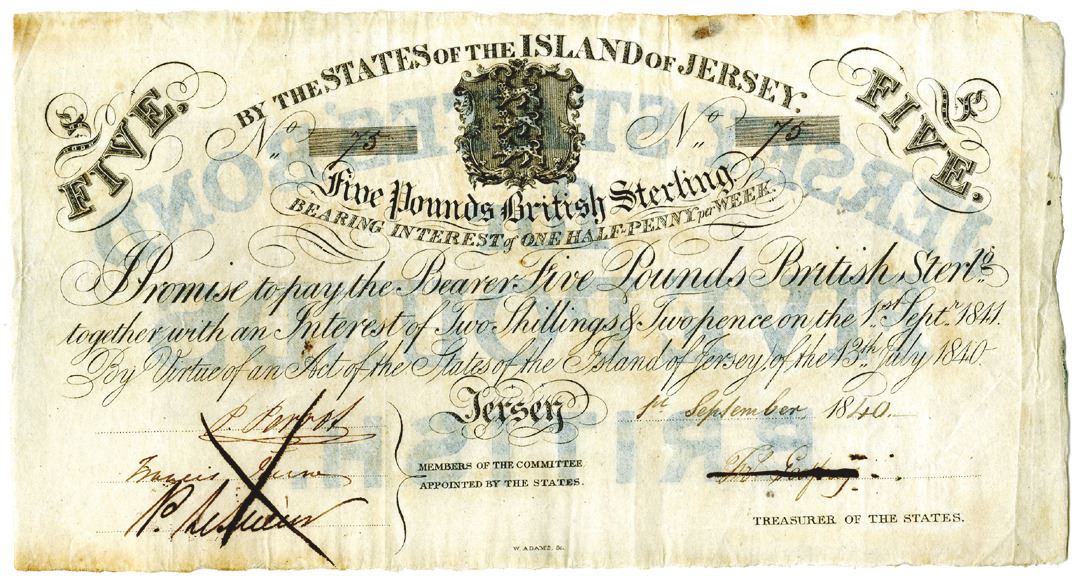 BY THE STATES OF THE ISLAND OF JERSEY.
FIVE.
FIVE.
No 75
No 75
Five Pounds British Sterling
BEARING INTEREST of ONE HALF-PENNY per WEEK.
I Promise to pay the Bearer Five Pounds British Sterlg
together with an Interest of Two Shillings & Twopence on the 1st Septr 1841.
By Virtue of an Act of the States of the Island of Jersey, of the 13th July 1840.
Jersey 1st September 1840.
P. Perrot
Francis
MEMBERS OF THE COMMITTEE
APPOINTED BY THE STATES.
TREASURER OF THE STATES.
W. ADAMS, Sc.
JERSEY STATES' BOND
FIVE POUNDS
BRITISH